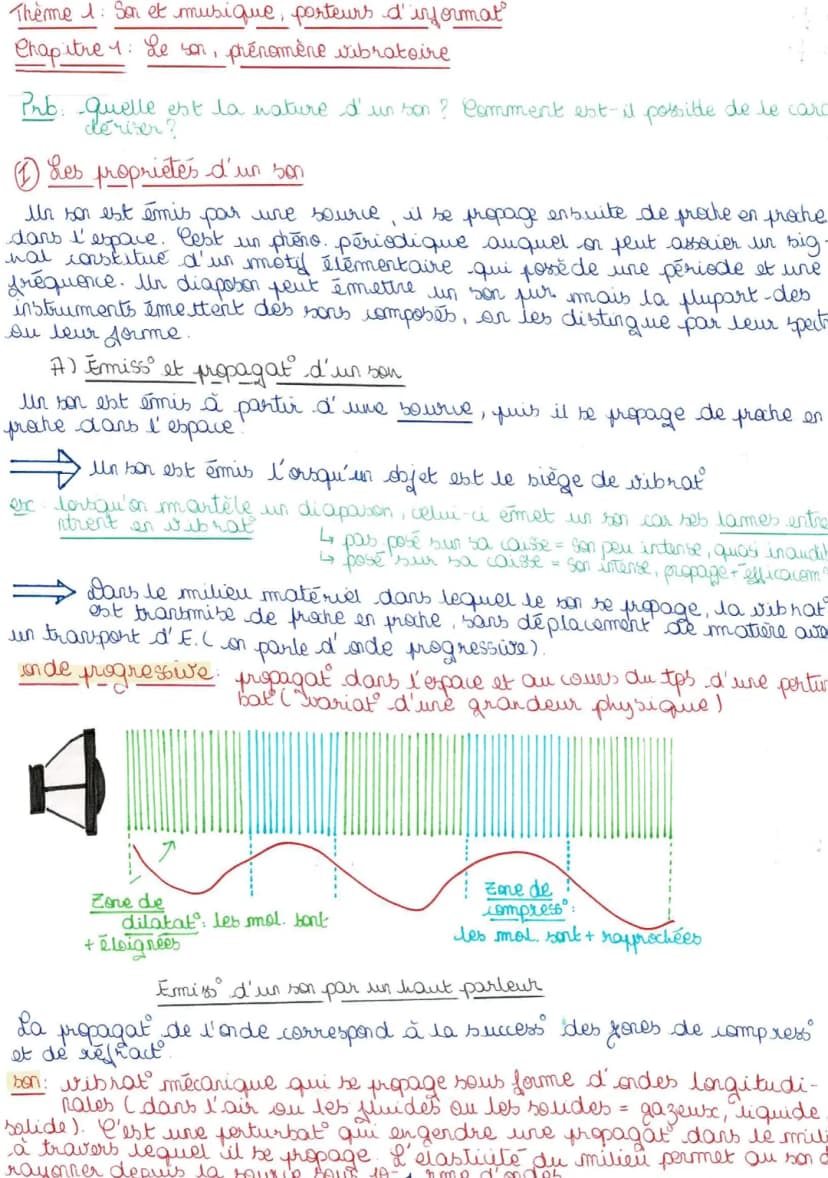 Thème 1: Son et musique, porteurs d'informat°
Chapitre 1: Le son, phénomène vibratoire
Prb: Quelle est la nature d'un son? Comment est-il possible de le carac
tériser?
① Les propriétés d'un son
Un son est émis par une source, il se propage ensuite de proche en proche
dans l'espace. C'est un phéno. périodique auquel on peut associer un sig-
nal constitué d'un motif élémentaire qui possède une période et une
fréquence. Un diapason peut émettre un son pur mais la plupart des
instruments émettent des sons composés, on les distingue par leur spect
ou leur forme.
A) Emiss° et propagat° d'un son
Un son est émis à partir d'une source, puis il se propage de proche en
proche dans l'espace.
⇒ Un son est émis l'orsqu'un objet est le siège de vibrat°
ex: lorsqu'on martèle un diapason, celui-ci émet un son car ses lames entre
ntrent en vibrat°
↳ pas posé sur sa caisse = son peu intense, quasi inaudib
↳ posé sur sa caisse = son intense, propage + efficacem
⇒ Dans le milieu matériel dans lequel le son se propage, la vibrat°
est transmise de proche en proche, sans déplacement de matière ave
un transport d'E. (on parle d'onde progressive).
onde progressive: propagat° dans l'espace et au cours du tps d'une pertur
bat° (variat° d'une grandeur physique)
Zone de
dilatat°: les mol. sont
+ éloignées
Zone de
compress°:
les mol. sont + rapprochées
Emiss° d'un son par un haut parleur
La propagat° de l'onde correspond à la success° des zones de compress°
et de réfract°.
son: vibrat° mécanique qui se propage sous forme d'ondes longitudi-
nales (dans l'air ou les fluides ou les solides = gazeux, liquide,
solide). C'est une perturbat° qui engendre une propagat° dans le mili
à travers lequel il se propage. L'élasticité du milieu permet au son d
rayonner depuis la source sous d'ondes